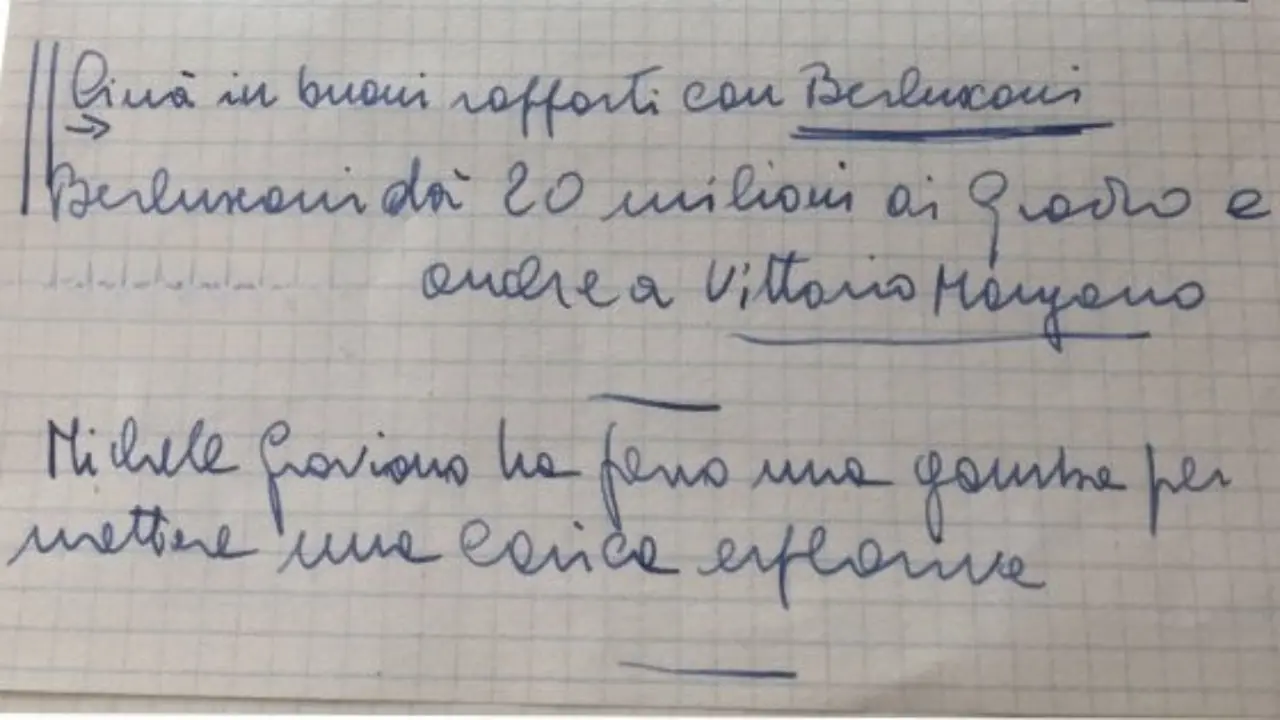 Cinà in buoni rapporti con Berlusconi
Berlusconi dà 20 milioni ai Grado e
anche a Vittorio Mangano
Michele Graviano ha perso una gamba per
mettere una carica esplosiva